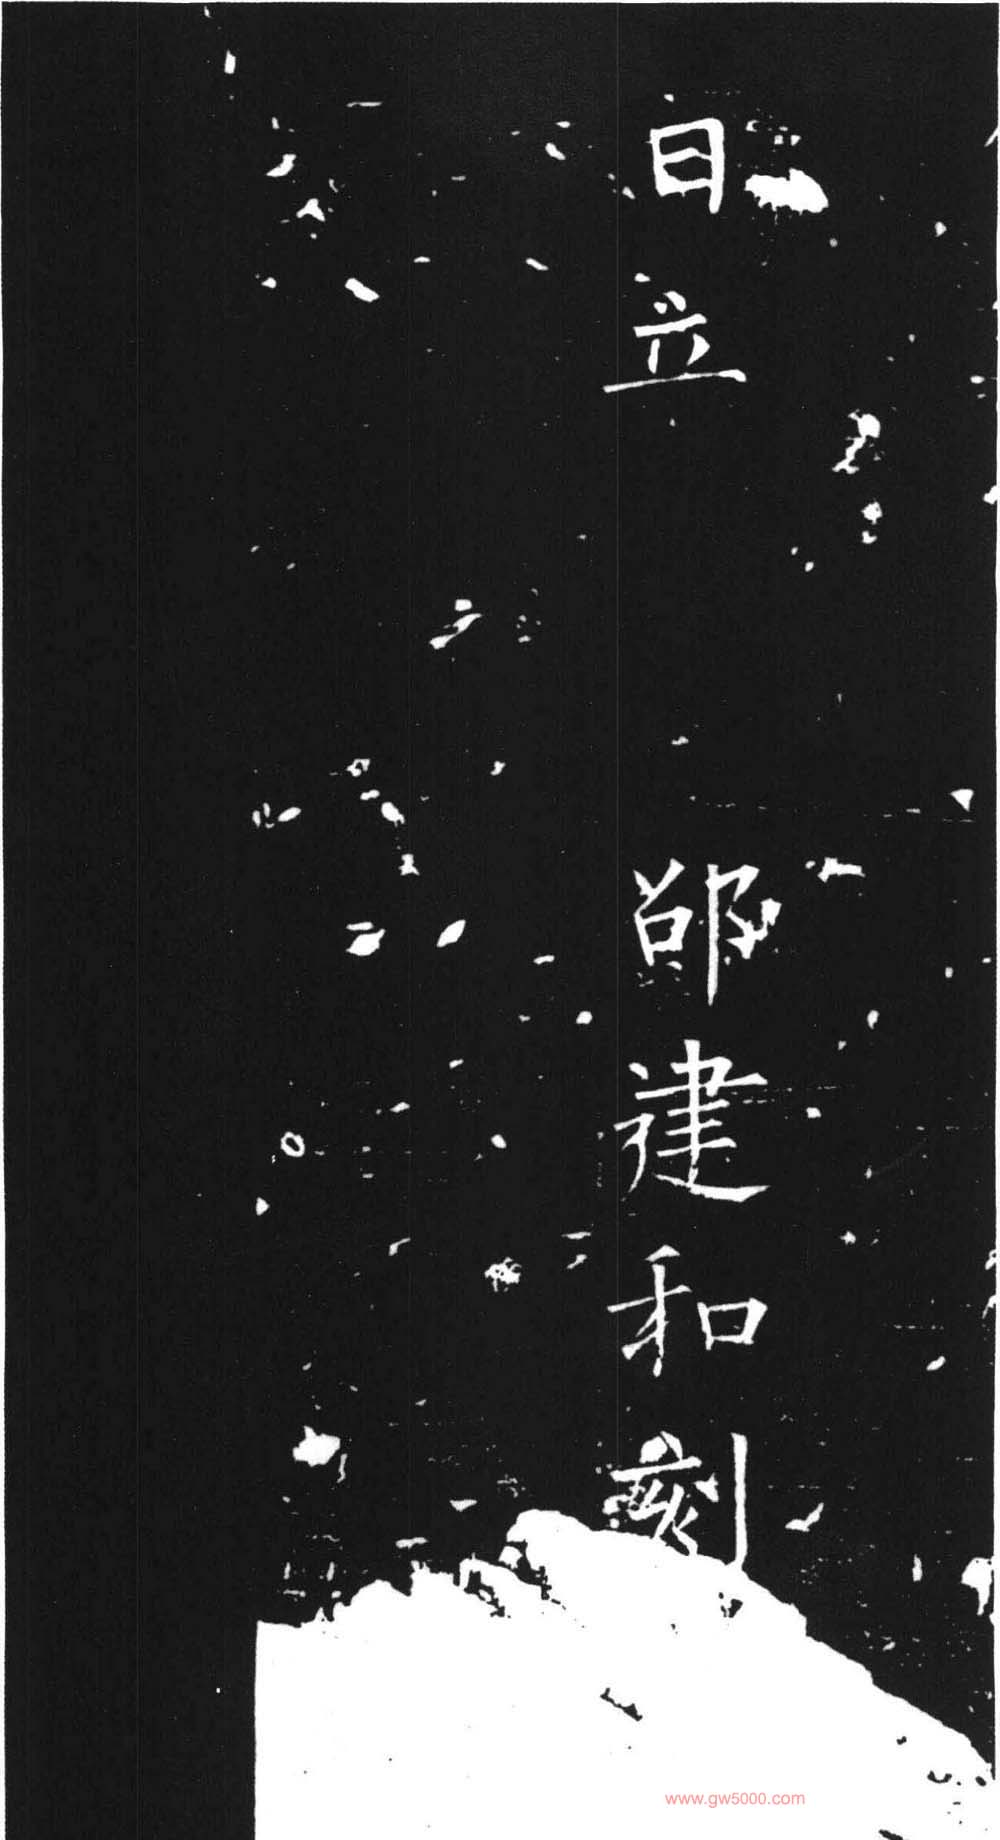 日立 邵建和刻
www.gw5000.com